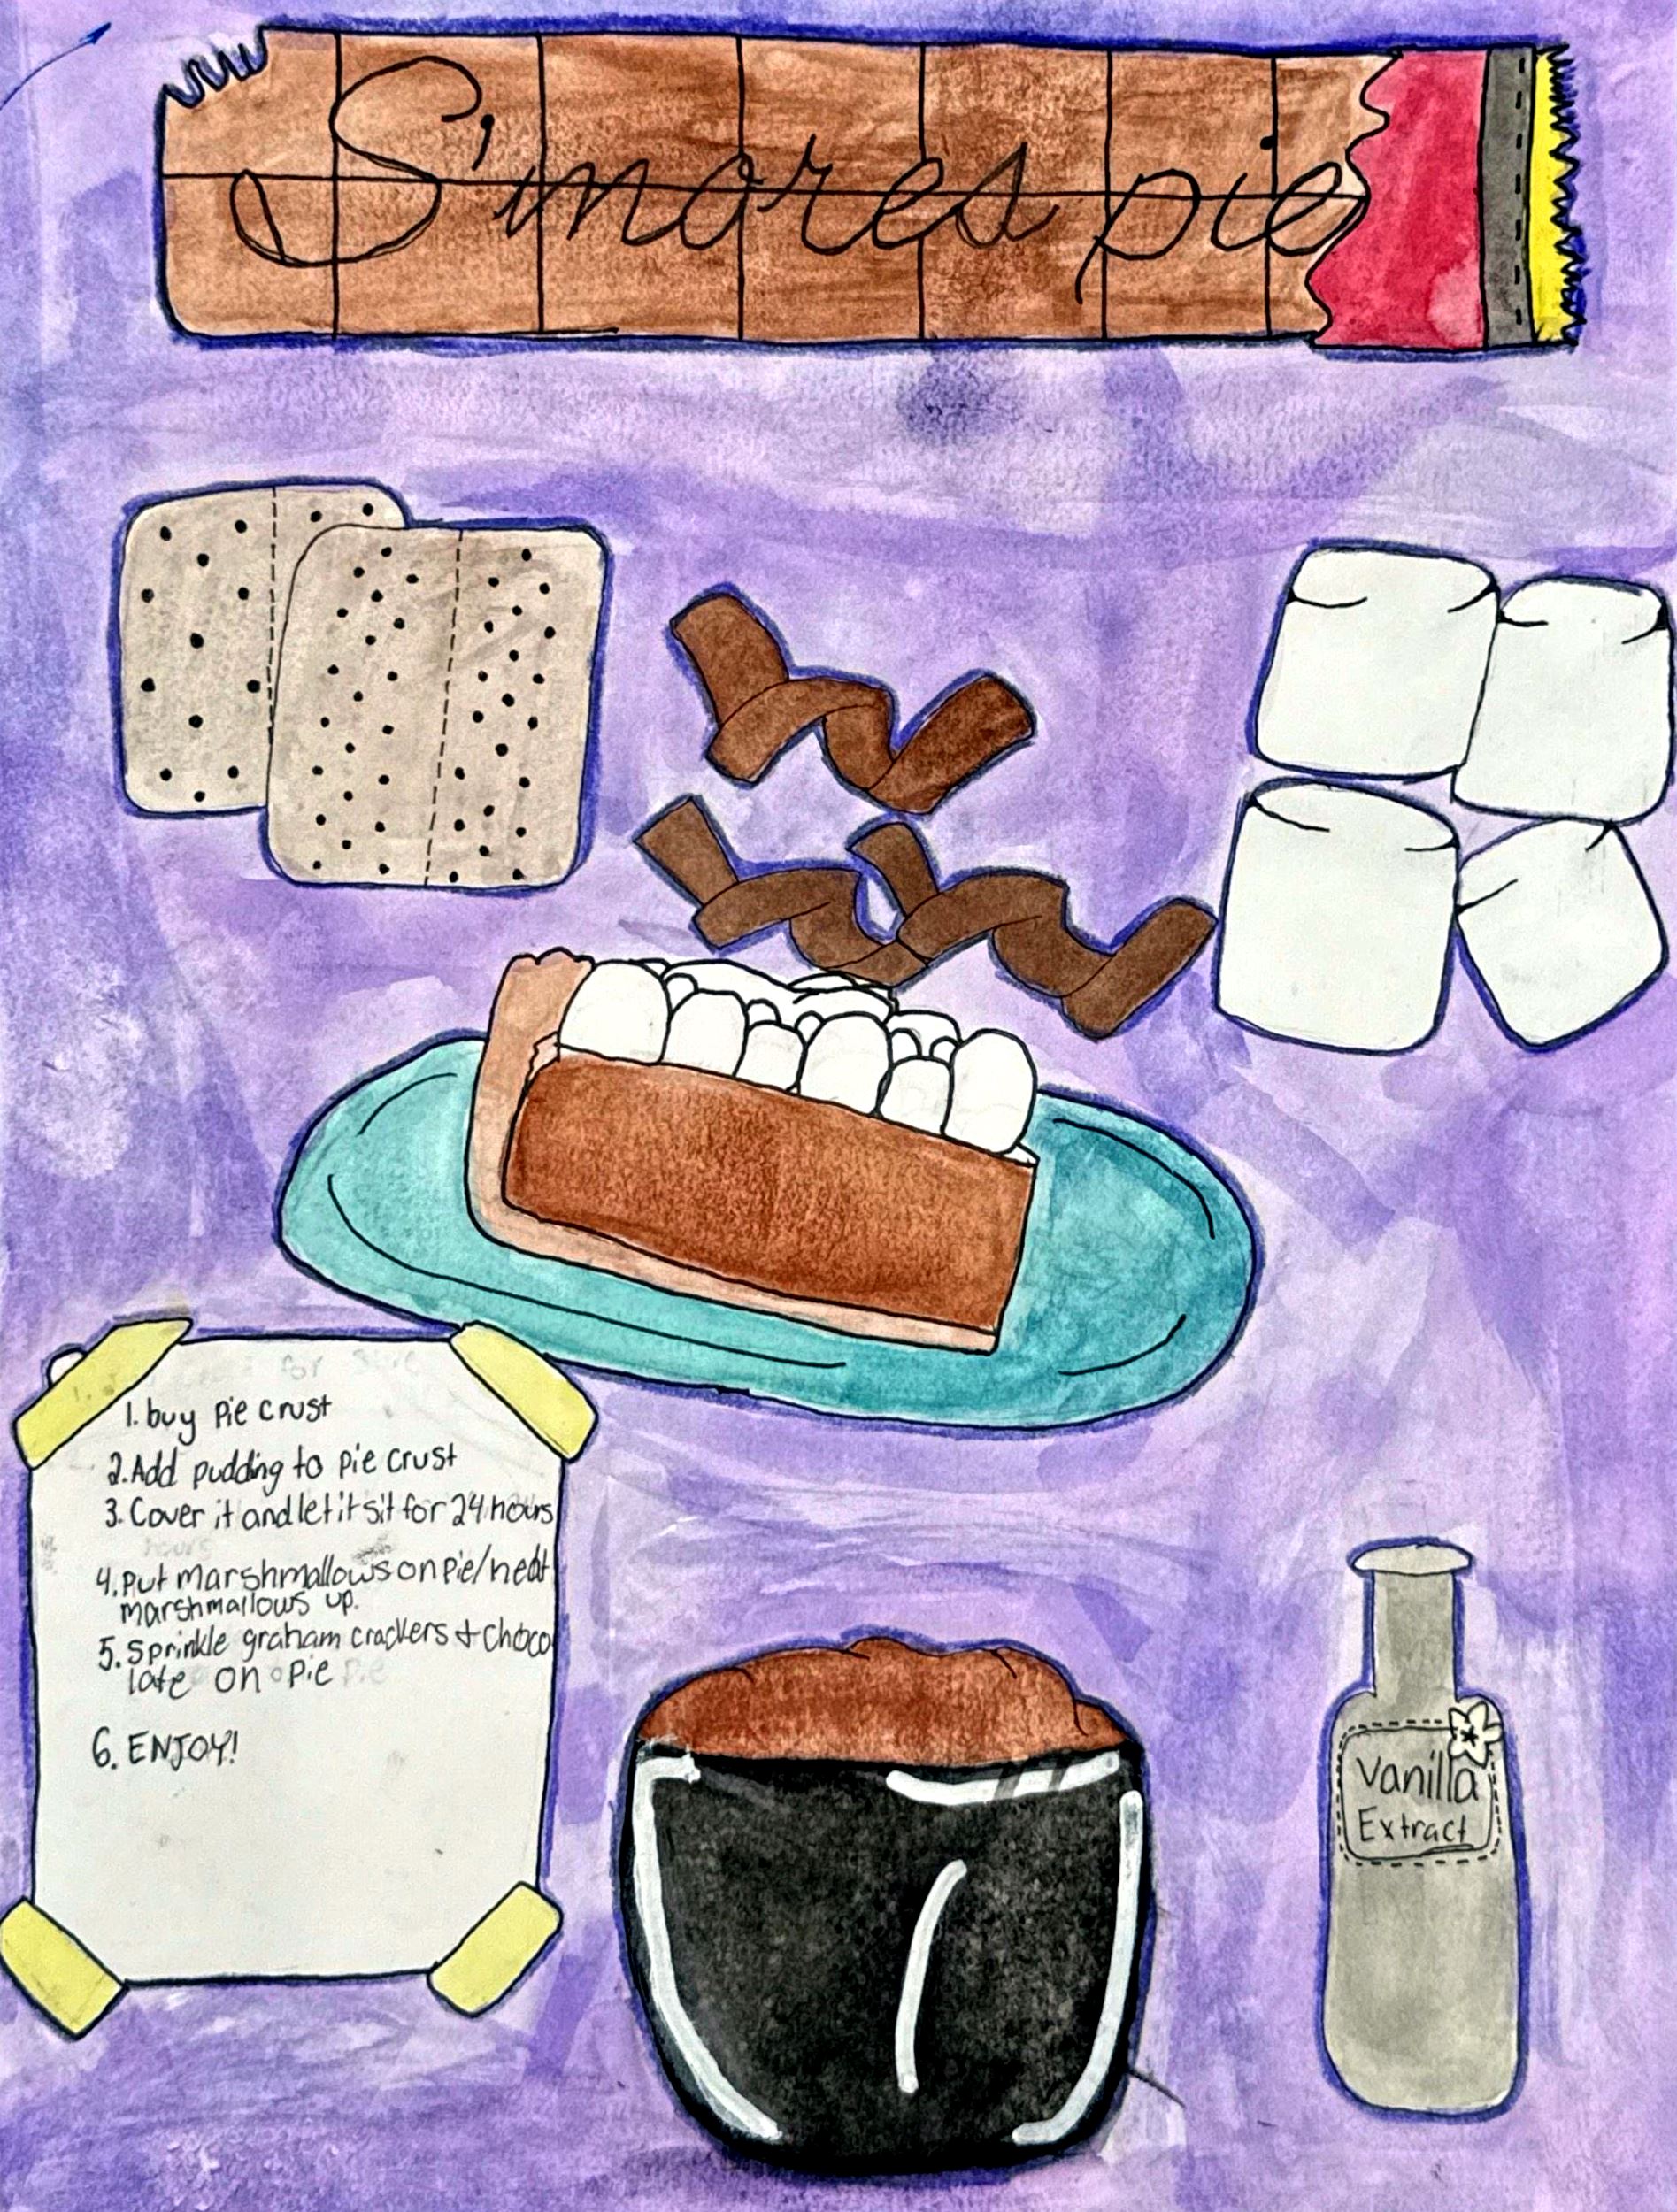 S'mores pie
1. buy pie crust
2. Add pudding to pie crust
3. Cover it and let it sit for 24 hours
hours
4. Put marshmallows on pie/heat
marshmallows up.
5. Sprinkle graham crackers + choco
late on pie pie
6. ENJOY!
Vanilla
Extract